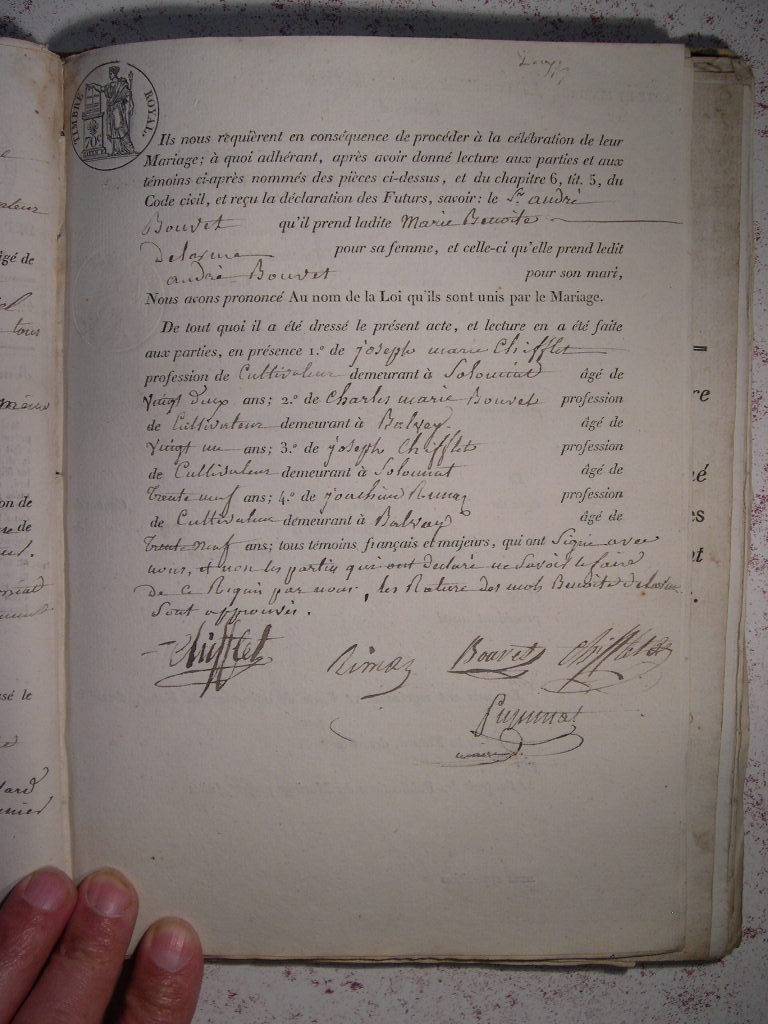 TIMBRE ROYAL.
70c
Ils nous requièrent en conséquence de procéder à la célébration de leur
Mariage; à quoi adhérant, après avoir donné lecture aux parties et aux
témoins ci-après nommés des pièces ci-dessus, et du chapitre 6, tit. 5, du
Code civil, et reçu la déclaration des Futurs, savoir: le Sr. andré
Bouvet qu'il prend ladite Marie Benoite
Delorme pour sa femme, et celle-ci qu'elle prend ledit
andré Bouvet pour son mari,
Nous avons prononcé Au nom de la Loi qu'ils sont unis par le Mariage.
De tout quoi il a été dressé le présent acte, et lecture en a été faite
aux parties, en présence 1.o de joseph marie Chifflet
profession de Cultivateur demeurant à Solomiat âgé de
vingt deux ans; 2.o de Charles marie Bouvet profession
de Cultivateur demeurant à Balvay. âgé de
vingt un ans; 3.o de joseph Chifflet profession
de Cultivateur demeurant à Solomiat âgé de
trente neuf ans; 4.o de joachim profession
de Cultivateur demeurant à Balvay âgé de
trente neuf ans; tous témoins français et majeurs, qui ont Signé avec
nous, et non les parties qui ont declaré ne Savoir le faire
de ce Requis par nous, les Rature des mots Benoite delorme
Sont approuvés.
Chifflet Bouvet Chifflet